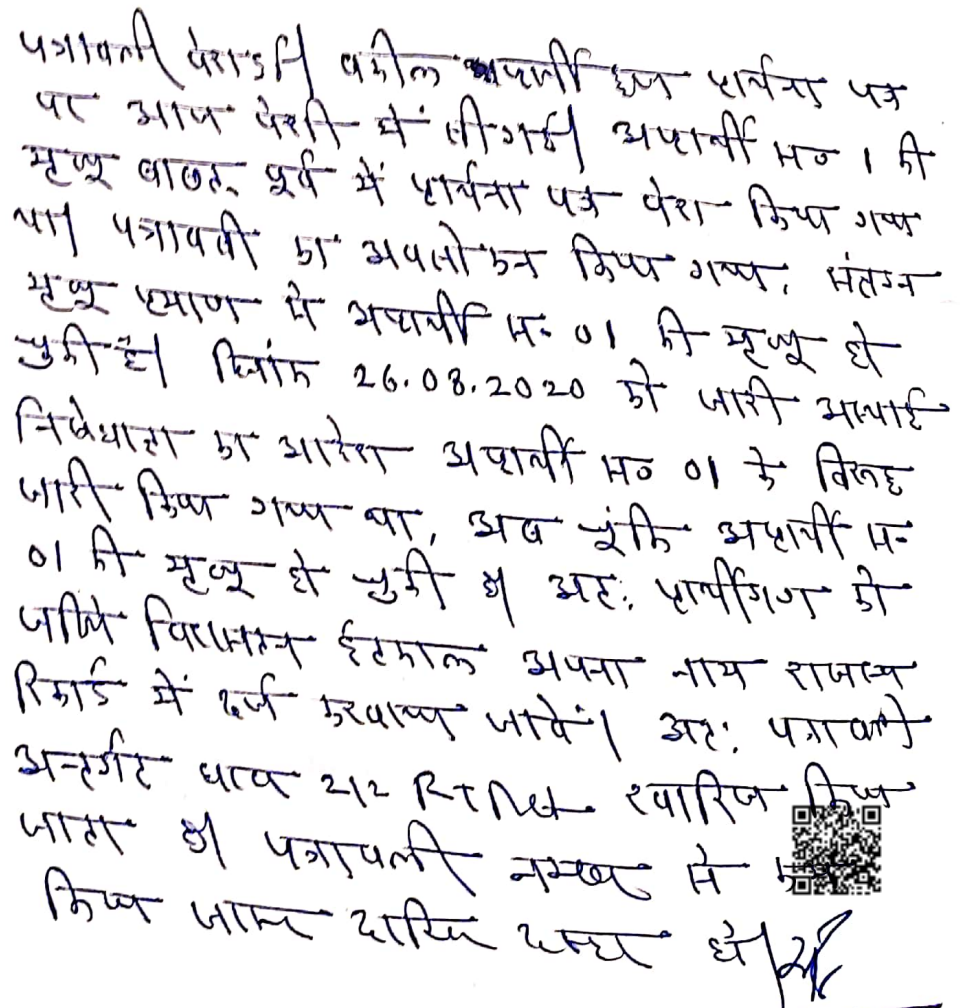 पत्रावली पेश हुई। वकील अप्रार्थी द्वारा प्रार्थना पत्र
पर आज पेशी में ली गई। अप्रार्थी स० 1 की
मृत्यु बाबत पूर्व में प्रार्थना पत्र पेश किया गया
था। पत्रावली का अवलोकन किया गया, संलग्न
मृत्यु प्रमाण से अप्रार्थी स० 01 की मृत्यु हो
चुकी है। दिनांक 26.08.2020 को जारी अस्थाई
निषेधाज्ञा का आदेश अप्रार्थी स० 01 के विरूद्ध
जारी किया गया था, अब चूंकि अप्रार्थी स०
01 की मृत्यु हो चुकी है। अतः प्रार्थीगण को
जरिये विरासतन इंतकाल अपना नाम राजस्व
रिकार्ड में दर्ज करवाया जावें। अतः पत्रावली
अन्तर्गत धारा 212 RT Act खारिज किया
जाता है। पत्रावली नम्बर से
किया जाकर दाखिल दफ्तर हो।